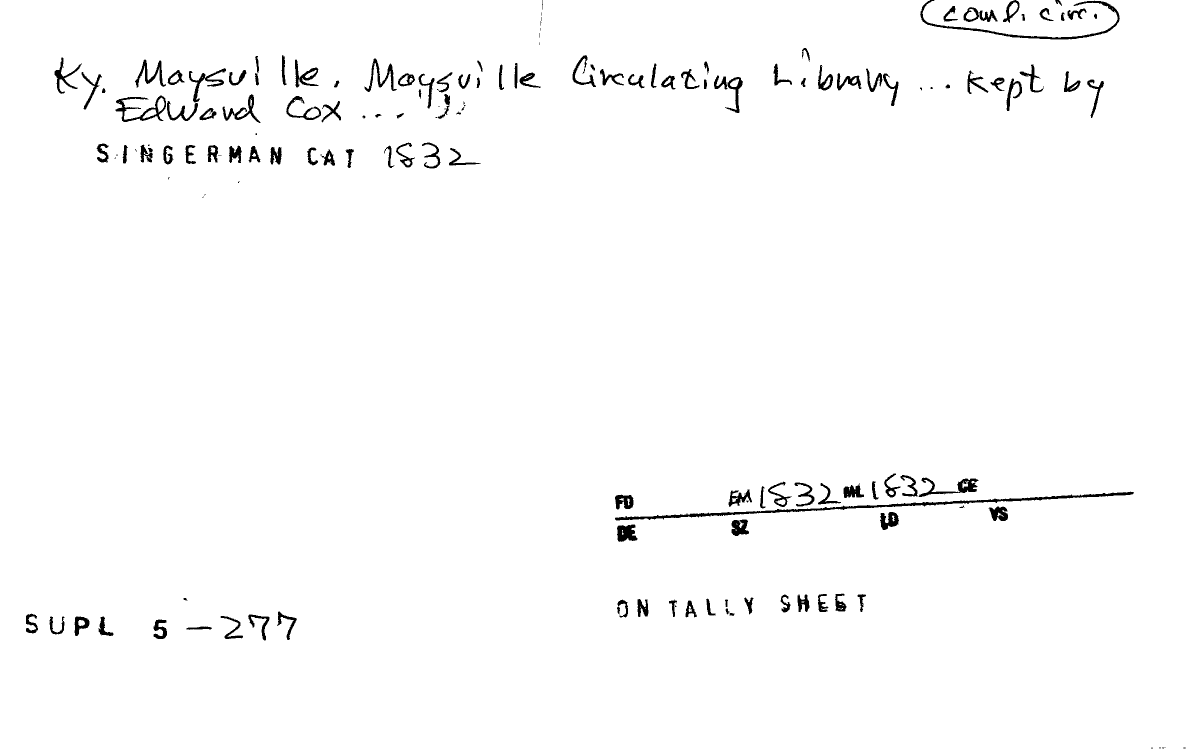 comp. circ.
Ky. Maysville. Maysville Circulating Library ... Kept by
Edward Cox ...
SINGERMAN CAT 1832
FD EM 1832 ML 1832 CE
DE SZ LD VS
ON TALLY SHEET
SUPL 5 - 277